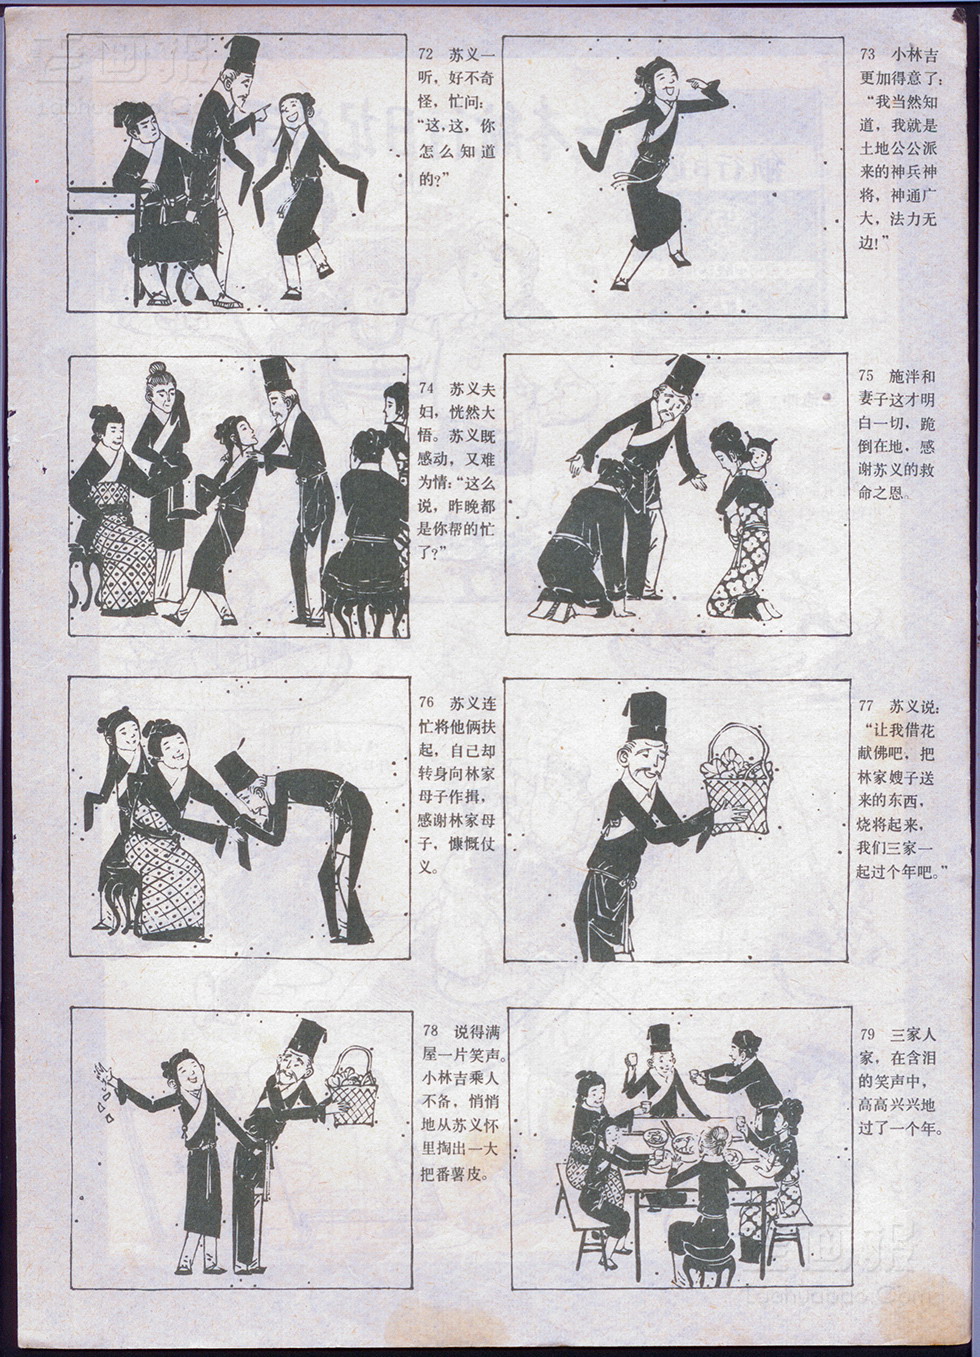 72 苏义一
听，好不奇
怪，忙问：
“这，这，你
怎么知道
的？”
73 小林吉
更加得意了：
“我当然知
道，我就是
土地公公派
来的神兵神
将，神通广
大，法力无
边！”
74 苏义夫
妇，恍然大
悟。苏义既
感动，又难
为情：“这么
说，昨晚都
是你帮的忙
了？”
75 施泮和
妻子这才明
白一切，跪
倒在地，感
谢苏义的救
命之恩。
76 苏义连
忙将他俩扶
起，自己却
转身向林家
母子作揖，
感谢林家母
子，慷慨仗
义。
77 苏义说：
“让我借花
献佛吧，把
林家嫂子送
来的东西，
烧将起来，
我们三家一
起过个年吧。”
78 说得满
屋一片笑声。
小林吉乘人
不备，悄悄
地从苏义怀
里掏出一大
把番薯皮。
79 三家人
家，在含泪
的笑声中，
高高兴兴地
过了一个年。